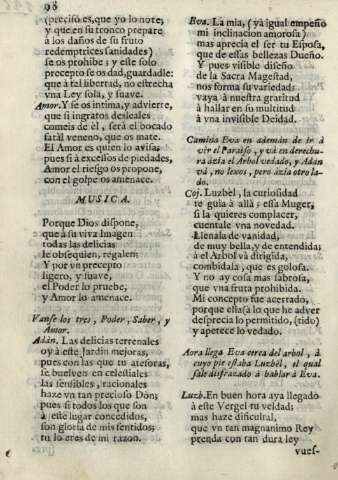 98
(preciso es, que yo lo note,
y que en su tronco prepare
à los daños de su fruto
redemptrices sanidades)
se os prohibe; y este solo
precepto se os dad, guardadle:
que à tel libertad, no estrecha
vna Ley sola, y suave.
Amor. Y se os intima, y advierte,
que si ingratos desleales
comeis de èl, serà el bocado
fatal veneno, que os mate.
El Amor es quien lo avisa;
pues si à excessos de piedades,
Amor el riesgo os propone,
con el golpe os amenace.
MUSICA.
Porque Dios dispone,
que à su viva Imagen
todas las delicias
le obsequien, regalen:
Y por vn precepto
ligero, y suave,
el Poder lo pruebe,
y Amor lo amenace.
Vanse los tres, Poder, Saber, y
Amor.
Adàn. Las delicias terrenales
oy à este Jardin mejoras,
pues con las que tu atesoras,
se buelven en celestiales
las sensibles, racionales
haze vn tan precioso Don;
pues si todos los que son
à este lugar concedidos,
son gloria de mis sentidos;
tu lo eres de mi razon.
Eva. La mia, (yà igual empeño
mi inclinacion amorosa)
mas aprecia el ser tu Esposa,
que de essas bellezas Dueño.
Y pues visible diseño
de la Sacra Magestad,
nos forma su variedad:
vaya à nuestra gratitud
à hallar en su multitud
à vna invisible Deidad.
Camina Eva en ademàn de ir à
vèr el Paraiso, y và en derechu-
ra àzia el Arbol vedado, y Adàn
và, no lexos, pero àzia otro la-
do.
Coj. Luzbèl, la curiosidad
te guia à allà; essa Muger,
si la quieres complacer,
cuentale vna novedad.
Llenala de vanidad,
de muy bella, y de entendida;
à el Arbol và dirigida,
combidala, que es golosa.
Y no ay cosa mas sabrosa,
que vna fruta prohibida.
Mi concepto fue acertado,
porque ella (à lo que he adver
desprecia lo permitido, (tido)
y apetece lo vedado.
Aora llega Eva cerca del arbol, à
cuyo pie estaba Luzbèl, el qual
sale disfrazado à hablar à Eva.
Luzb. En buen hora aya llegado
à este Vergel tu veldad;
mas haze dificultad,
que vn tan magnanimo Rey
prenda con tan dura ley
vues-